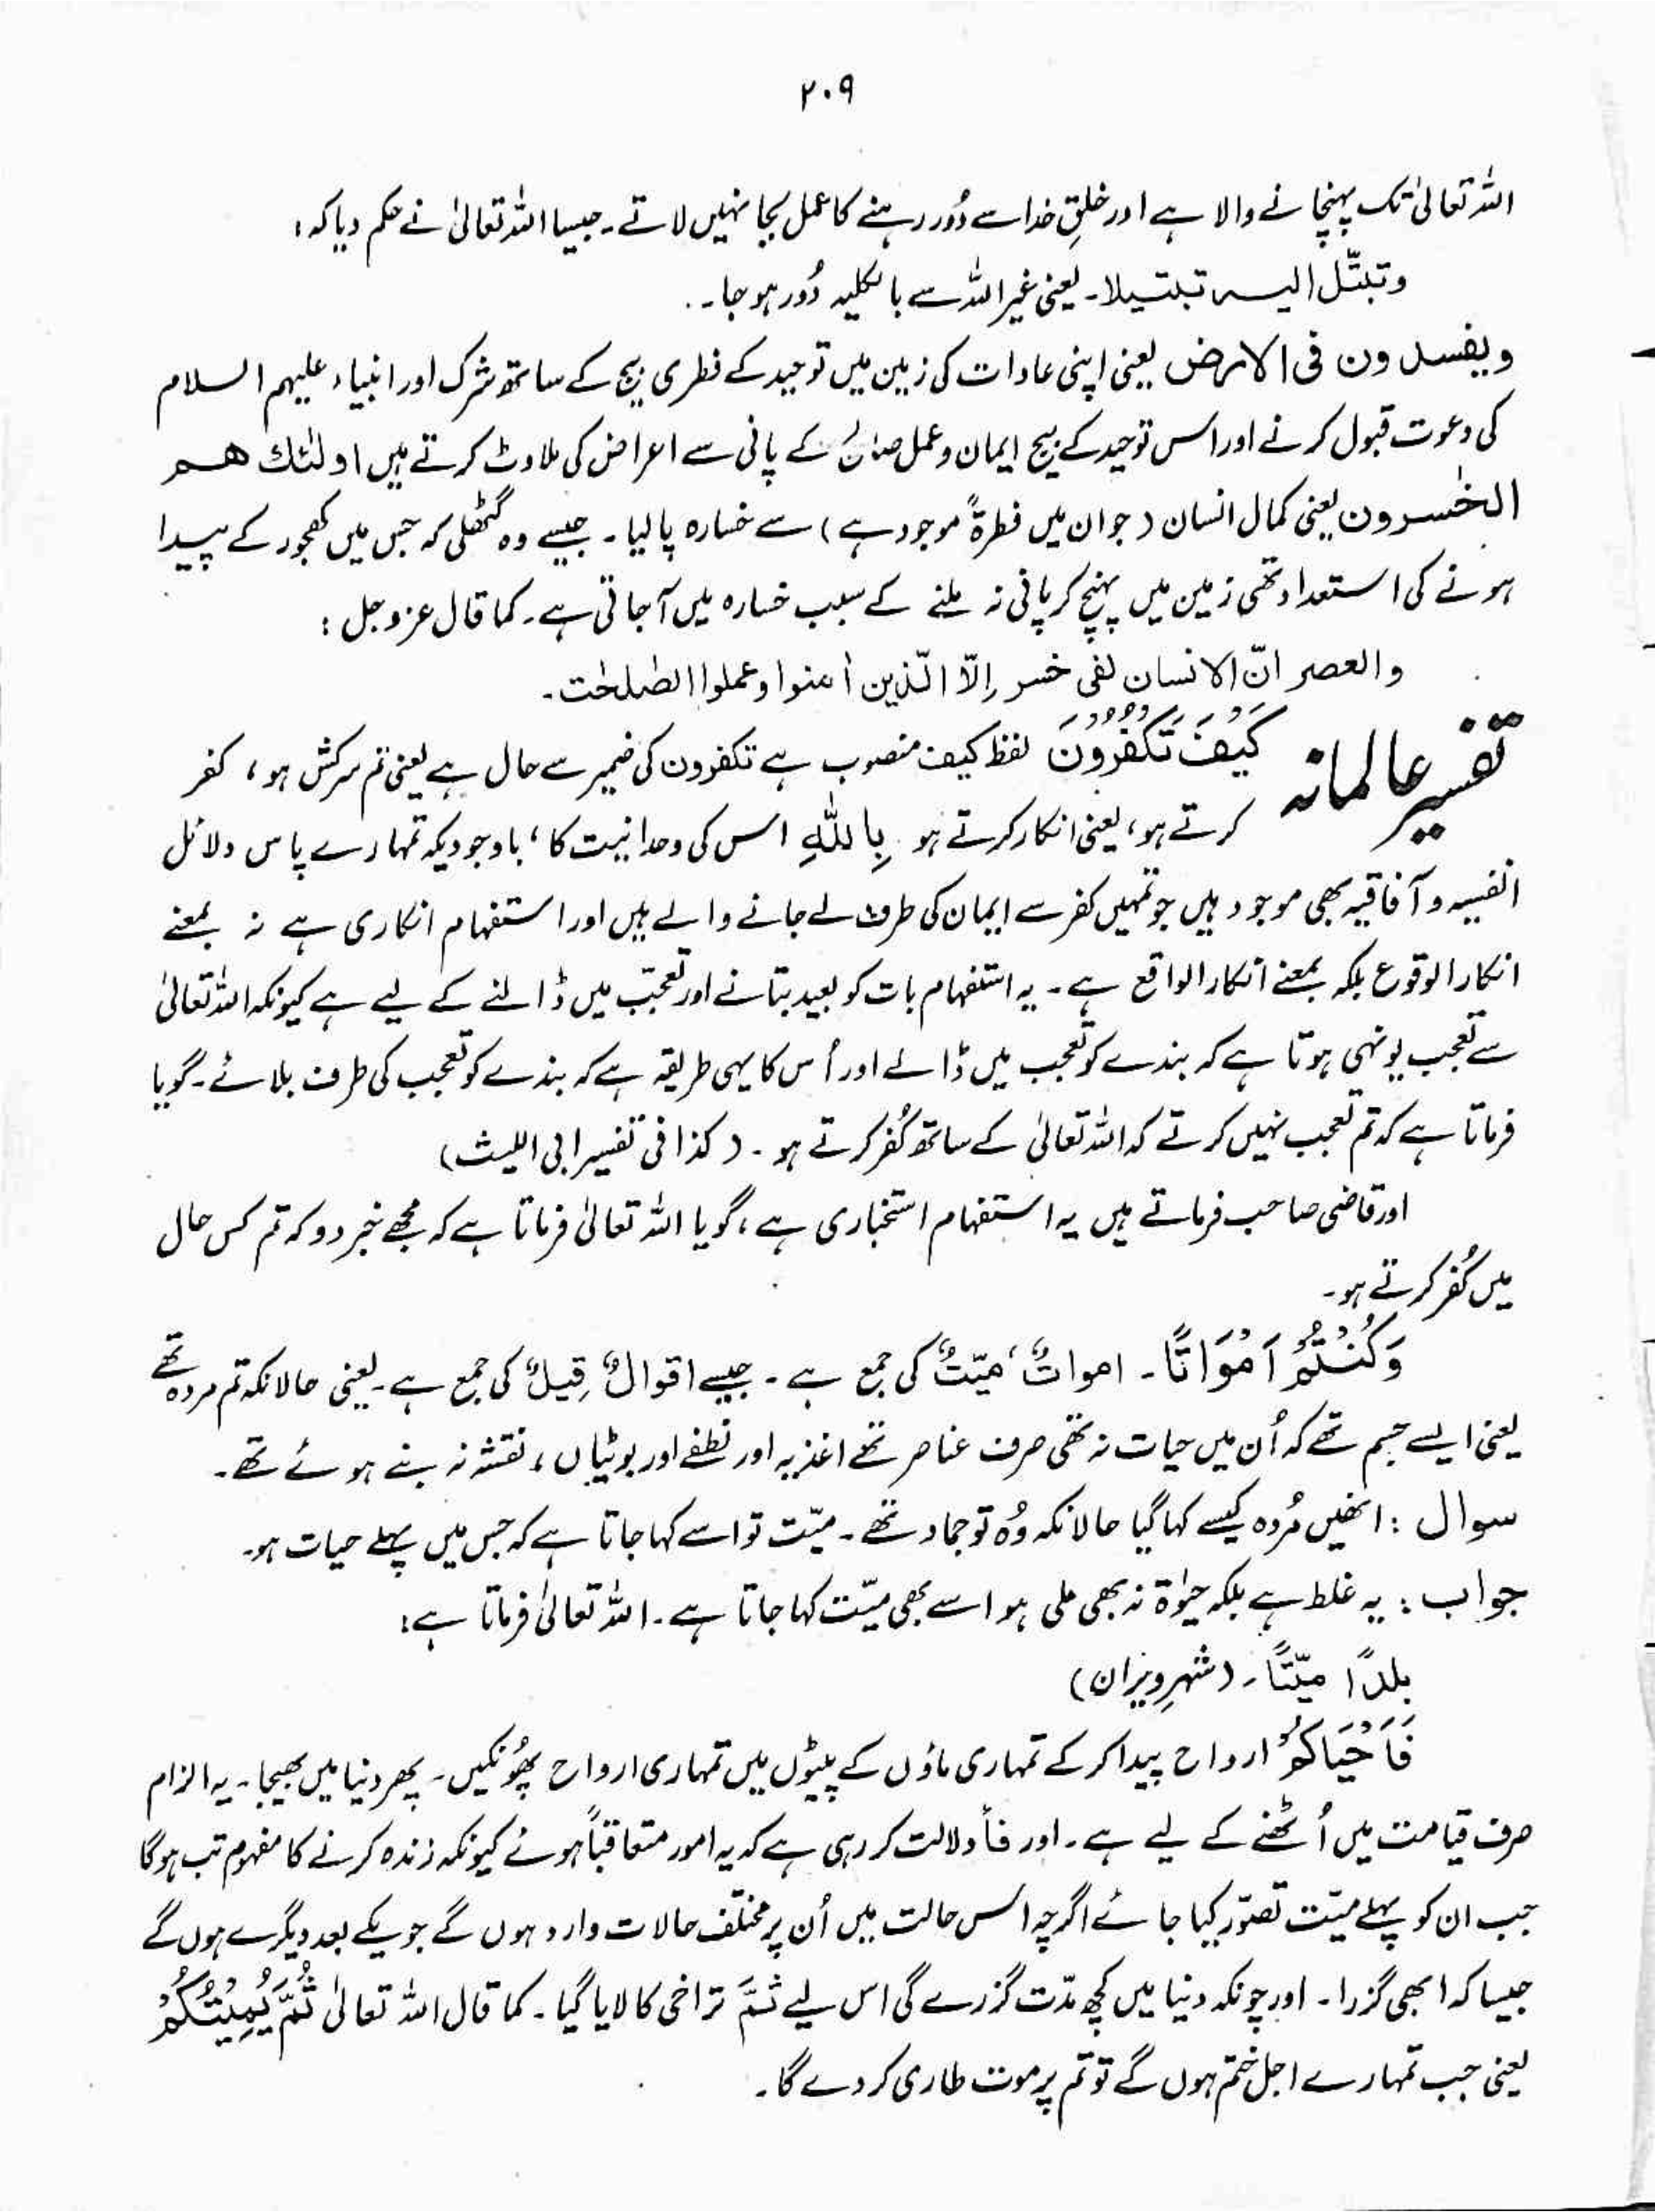 ۲۰۹
اللہ تعالیٰ تک پہنچانے والا ہے اور خلقِ خدا سے دُور رہنے کا عمل بجا نہیں لاتے۔ جیسا اللہ تعالیٰ نے حکم دیا کہ:
وتبتّل الیہ تبتیلا۔ یعنی غیر اللہ سے بالکلیہ دُور ہو جا۔
ویفسدون فی الارض یعنی اپنی عادات کی زمین میں توحید کے فطری بیج کے ساتھ شرک اور انبیاء علیہم السلام
کی دعوت قبول کرنے اور اس توحید کے بیج ایمان و عمل صالح کے پانی سے اعراض کی ملاوٹ کرتے ہیں اولٰئک ھم
الخٰسرون یعنی کمال انسان (جو ان میں فطرۃً موجود ہے) سے خسارہ پالیا۔ جیسے وہ گٹھلی کہ جس میں کھجور کے پیدا
ہونے کی استعداد تھی زمین میں پہنچ کر پانی نہ ملنے کے سبب خسارہ میں آجاتی ہے۔ کما قال عزوجل:
والعصر انّ الانسان لفی خسر اِلّا الّذین اٰمنوا وعملوا الصّٰلحٰت۔
تفسیر عالمانہ کَیْفَ تَکْفُرُوْنَ لفظ کیف منصوب ہے تکفرون کی ضمیر سے حال ہے یعنی تم سرکش ہو، کفر
کرتے ہو، یعنی انکار کرتے ہو بِاللّٰہِ اس کی وحدانیت کا، باوجودیکہ تمہارے پاس دلائل
انفسیہ و آفاقیہ بھی موجود ہیں جو تمہیں کفر سے ایمان کی طرف لے جانے والے ہیں اور استفہام انکاری ہے نہ بمعنے
انکار الوقوع بلکہ بمعنے انکار الواقع ہے۔ یہ استفہام بات کو بعید بتانے اور تعجّب میں ڈالنے کے لیے ہے کیونکہ اللہ تعالیٰ
سے تعجب یونہی ہوتا ہے کہ بندے کو تعجب میں ڈالے اور اُس کا یہی طریقہ ہے کہ بندے کو تعجب کی طرف بلائے۔ گویا
فرماتا ہے کہ تم تعجب نہیں کرتے کہ اللہ تعالیٰ کے ساتھ کُفر کرتے ہو۔ (کذا فی تفسیر ابی اللیث)
اور قاضی صاحب فرماتے ہیں یہ استفہام استخباری ہے، گویا اللہ تعالیٰ فرماتا ہے کہ مجھے خبر دو کہ تم کس حال
میں کُفر کرتے ہو۔
وَکُنْتُمْ اَمْوَاتًا۔ امواتٌ، میّتٌ کی جمع ہے۔ جیسے اقوالٌ قِیلٌ کی جمع ہے۔ یعنی حالانکہ تم مردہ تھے
یعنی ایسے جسم تھے کہ اُن میں حیات نہ تھی صرف عناصر تھے اغذیہ اور نطفے اور بوٹیاں، نقشہ نہ بنے ہوئے تھے۔
سوال : انھیں مُردہ کیسے کہا گیا حالانکہ وُہ تو جماد تھے۔ میّت تو اسے کہا جاتا ہے کہ جس میں پہلے حیات ہو۔
جواب : یہ غلط ہے بلکہ حیٰوۃ نہ بھی ملی ہو اسے بھی میّت کہا جاتا ہے۔ اللہ تعالیٰ فرماتا ہے:
بلدًا میّتًا۔ (شہرِ ویران)
فَاَحْیَاکُمْ ارواح پیدا کر کے تمہاری ماؤں کے پیٹوں میں تمہاری ارواح پھُونکیں۔ پھر دنیا میں بھیجا۔ یہ الزام
صرف قیامت میں اُٹھنے کے لیے ہے۔ اور فأ دلالت کر رہی ہے کہ یہ امور متعاقباً ہوئے کیونکہ زندہ کرنے کا مفہوم تب ہوگا
جب ان کو پہلے میّت تصوّر کیا جائے اگرچہ اس حالت میں اُن پر مختلف حالات وارد ہوں گے جو یکے بعد دیگرے ہوں گے
جیسا کہ ابھی گزرا۔ اور چونکہ دنیا میں کچھ مدّت گزرے گی اس لیے ثمَّ تراخی کا لایا گیا۔ کما قال اللہ تعالیٰ ثُمَّ یُمِیْتُکُمْ
یعنی جب تمہارے اجل ختم ہوں گے تو تم پر موت طاری کر دے گا۔